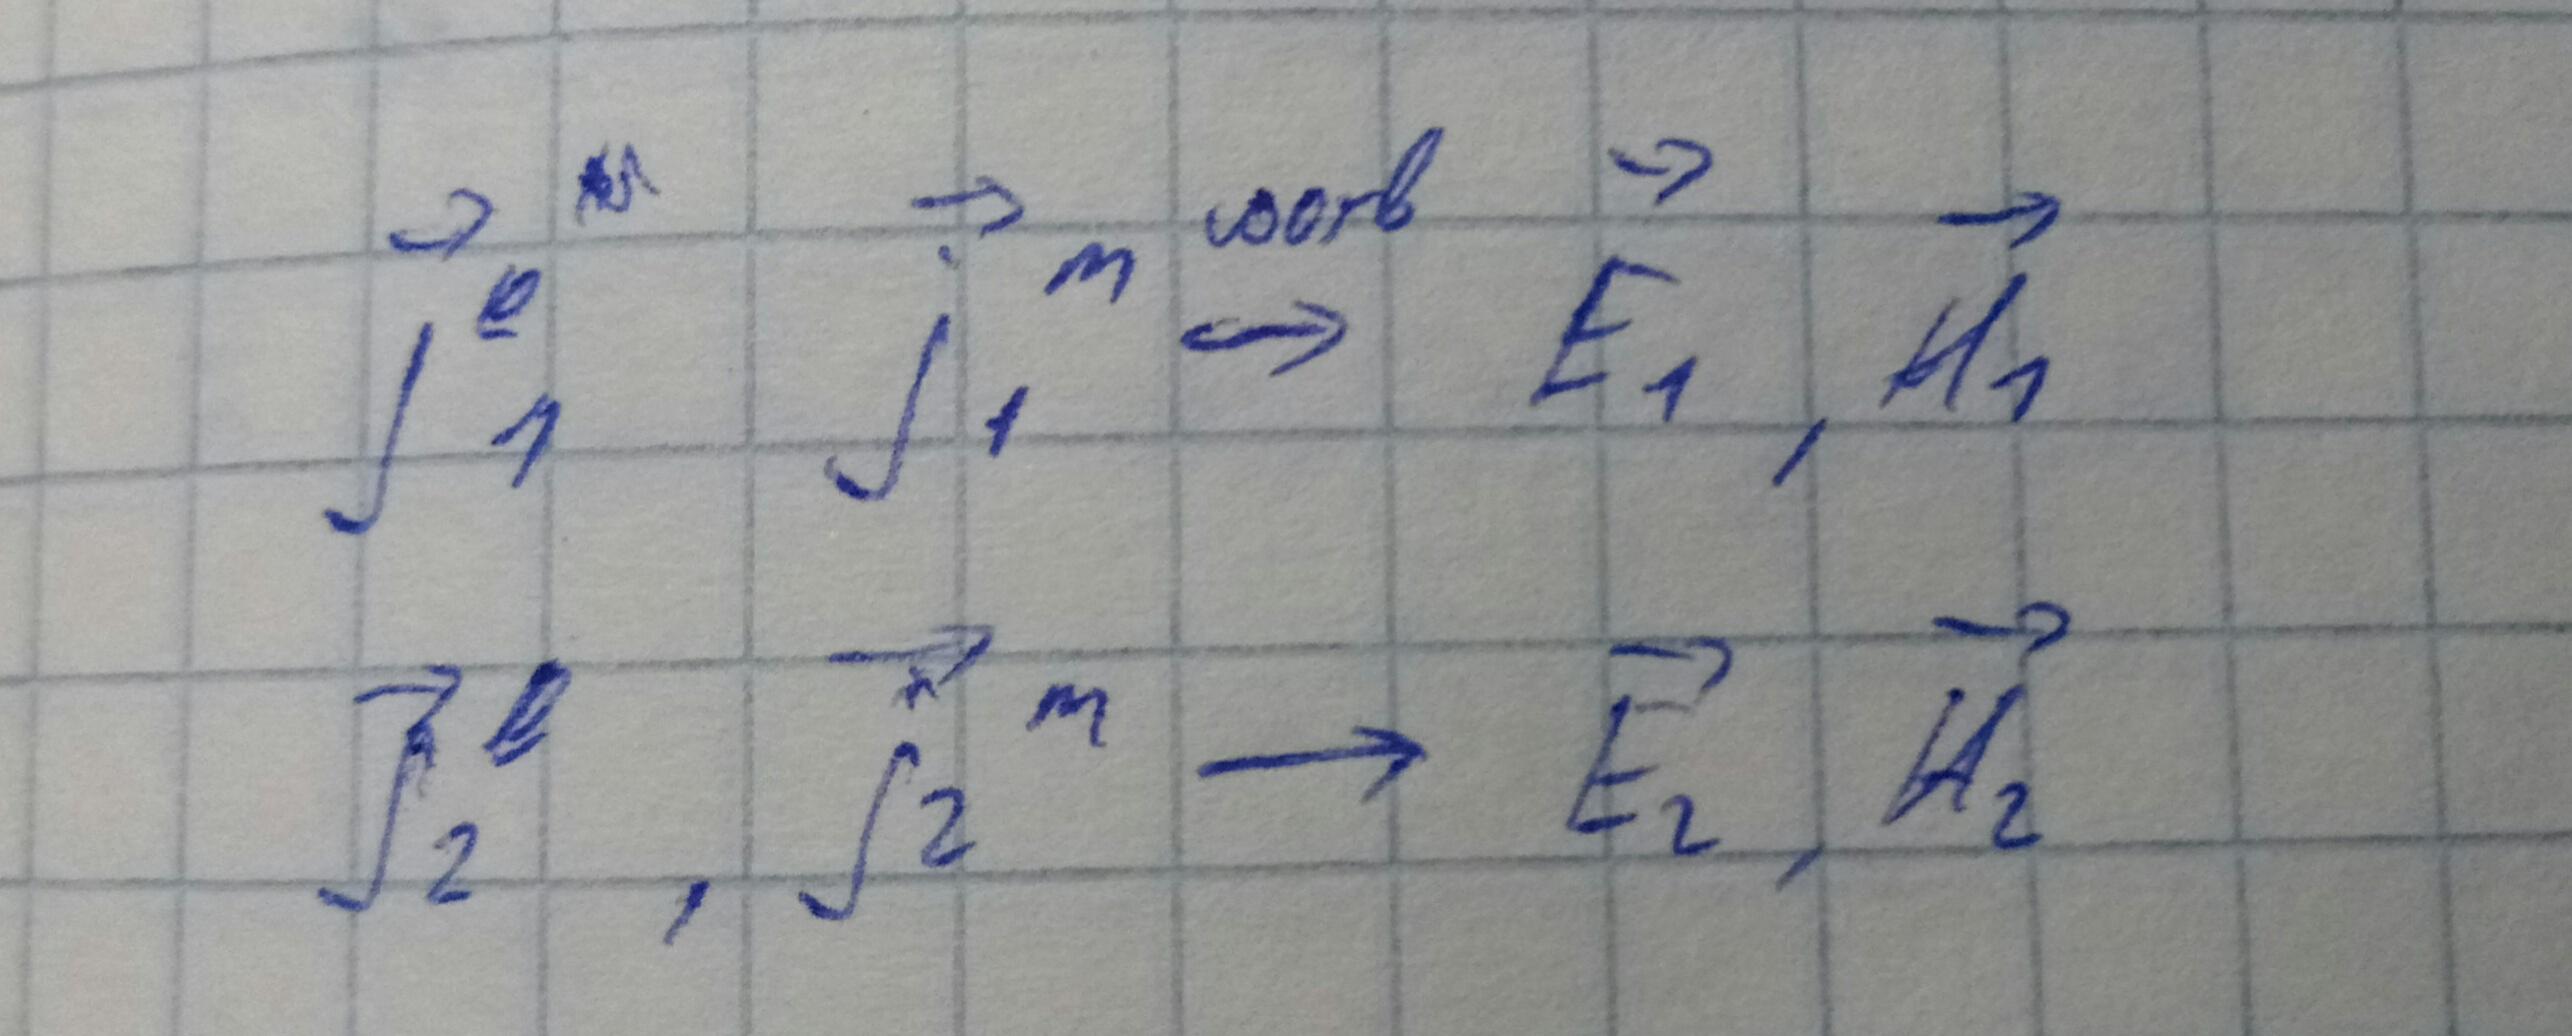 j⃗₁ᵉ j⃗₁ᵐ соотв → E⃗₁, H⃗₁
j⃗₂ᵉ, j⃗₂ᵐ → E⃗₂, H⃗₂